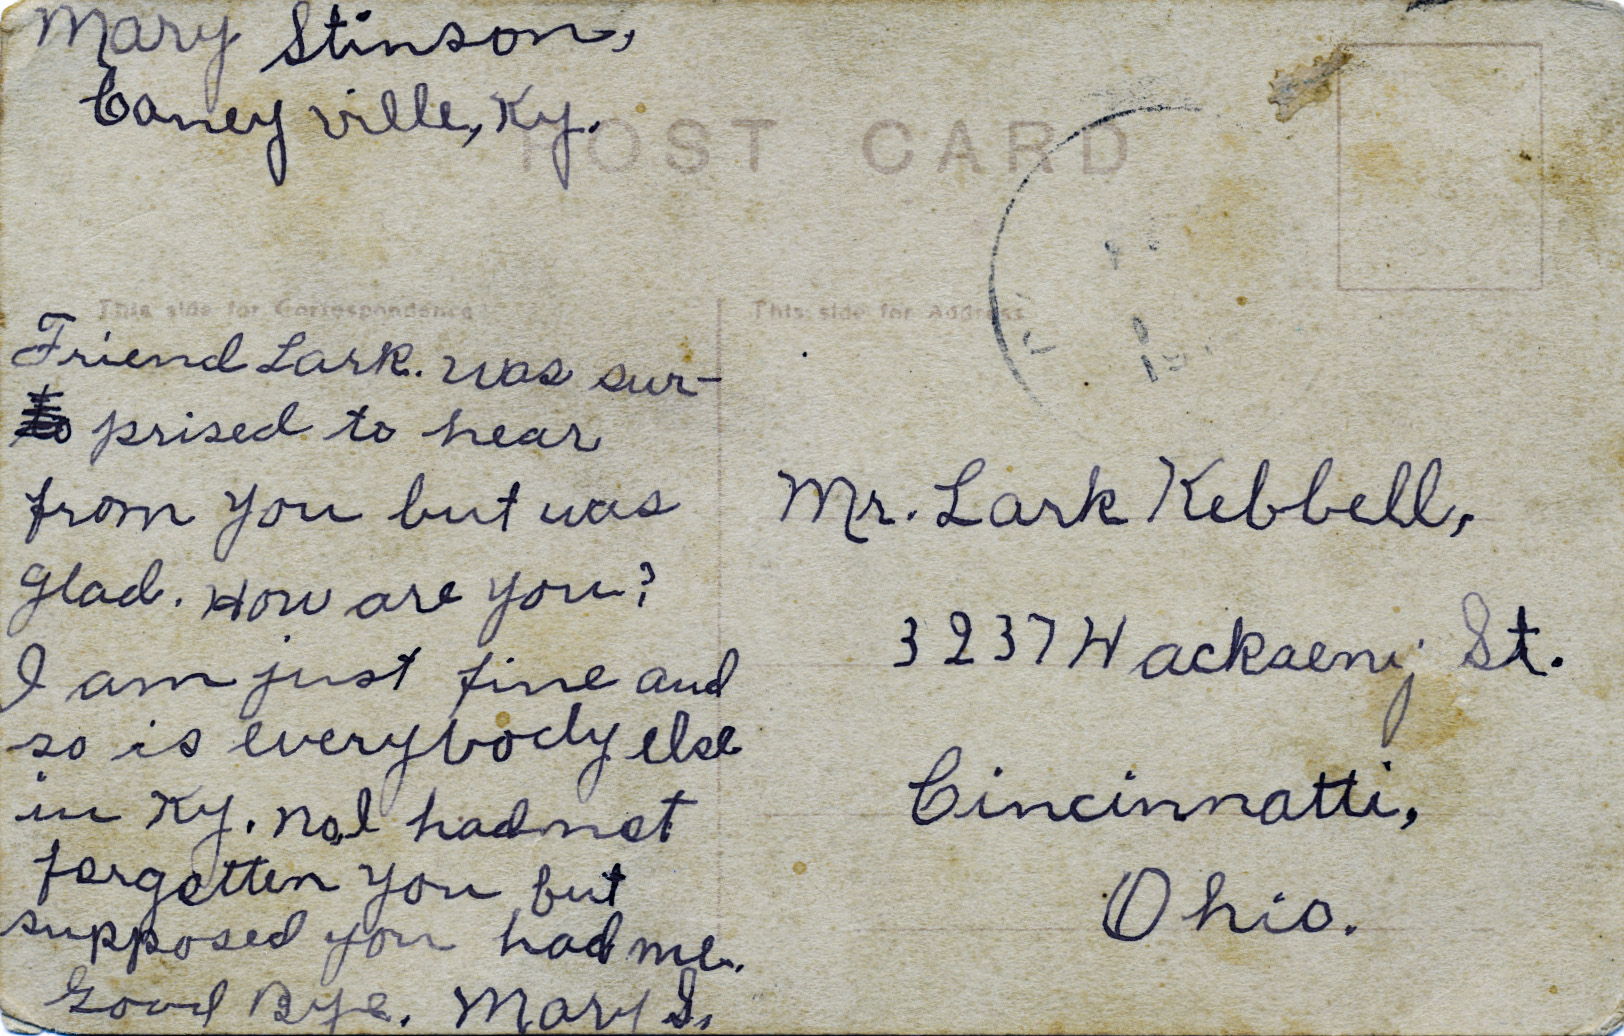 Mary Stinson,
Caneyville, Ky.
POST CARD
This side for Correspondence
This side for Address
Friend Lark. was sur-
to prised to hear
from you but was
glad. How are you?
I am just fine and
so is everybody else
in Ky. No, I had not
forgotten you but
supposed you had me.
Good Bye. Mary S.
Mr. Lark Kebbell,
3237 Wackaeny St.
Cincinnatti,
Ohio.